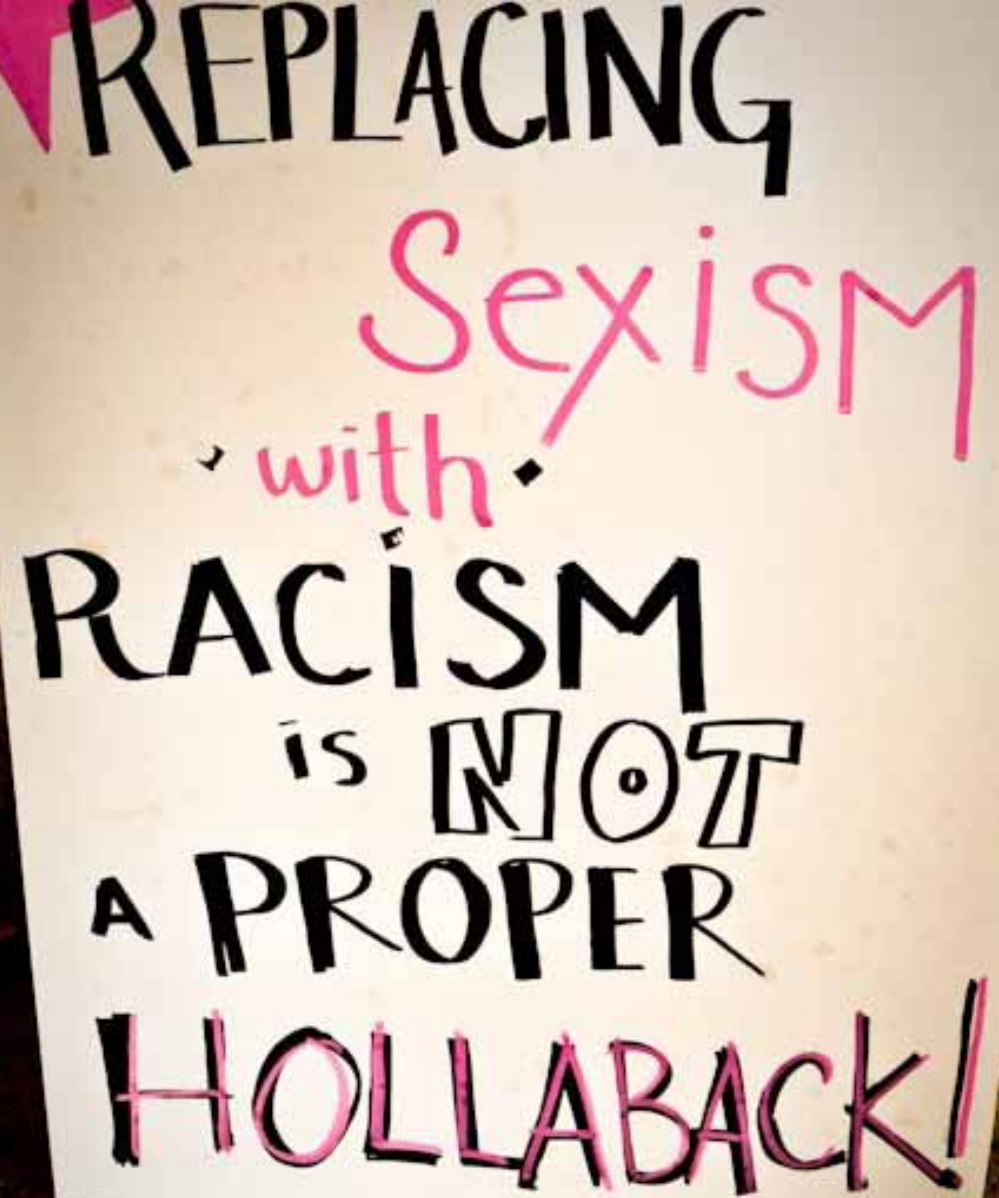 REPLACING
SexisM
with
RACiSM
is NOT
A PROPER
HOLLABACK!